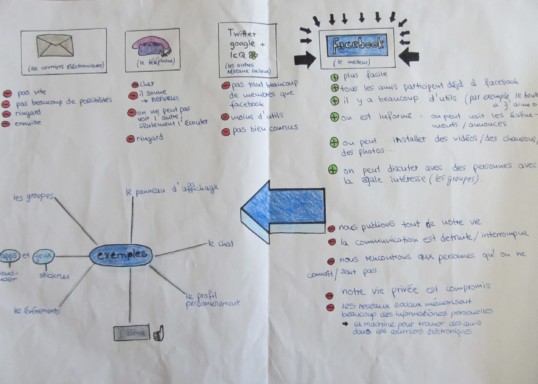 (les courriers électroniques)
pas vite
pas beaucoup de possibilités
ringard
ennuie
(le téléphone)
cher
il sonne
→ nerveux
on ne peut pas
voir l'autre,
seulement l'écouter
ringard
Twitter
google +
ICQ
(les autres
réseaux sociaux)
pas tout beaucoup
de membres que
facebook
moins d'utils
pas bien connus
facebook
(le meilleur)
plus facile
tous les amis participent déjà à facebook
il y a beaucoup d'utils (par exemple le chat
on est informé: on peut voir les
on peut installer des vidéos/des chansons/
des photos...
on peut discuter avec des personnes avec
la égale intéresse (les groupes).
les groupes
le panneau d'affichage
le chat
le profil
exemples
apps et jeux
le événements
nous publions tout de votre vie
la communication est détruite/interrompue
nous rencontrons aux personnes qu'on ne
connaît/sait pas
notre vie privée est compromis
les réseaux sociaux mémorisent
beaucoup des informations personelles